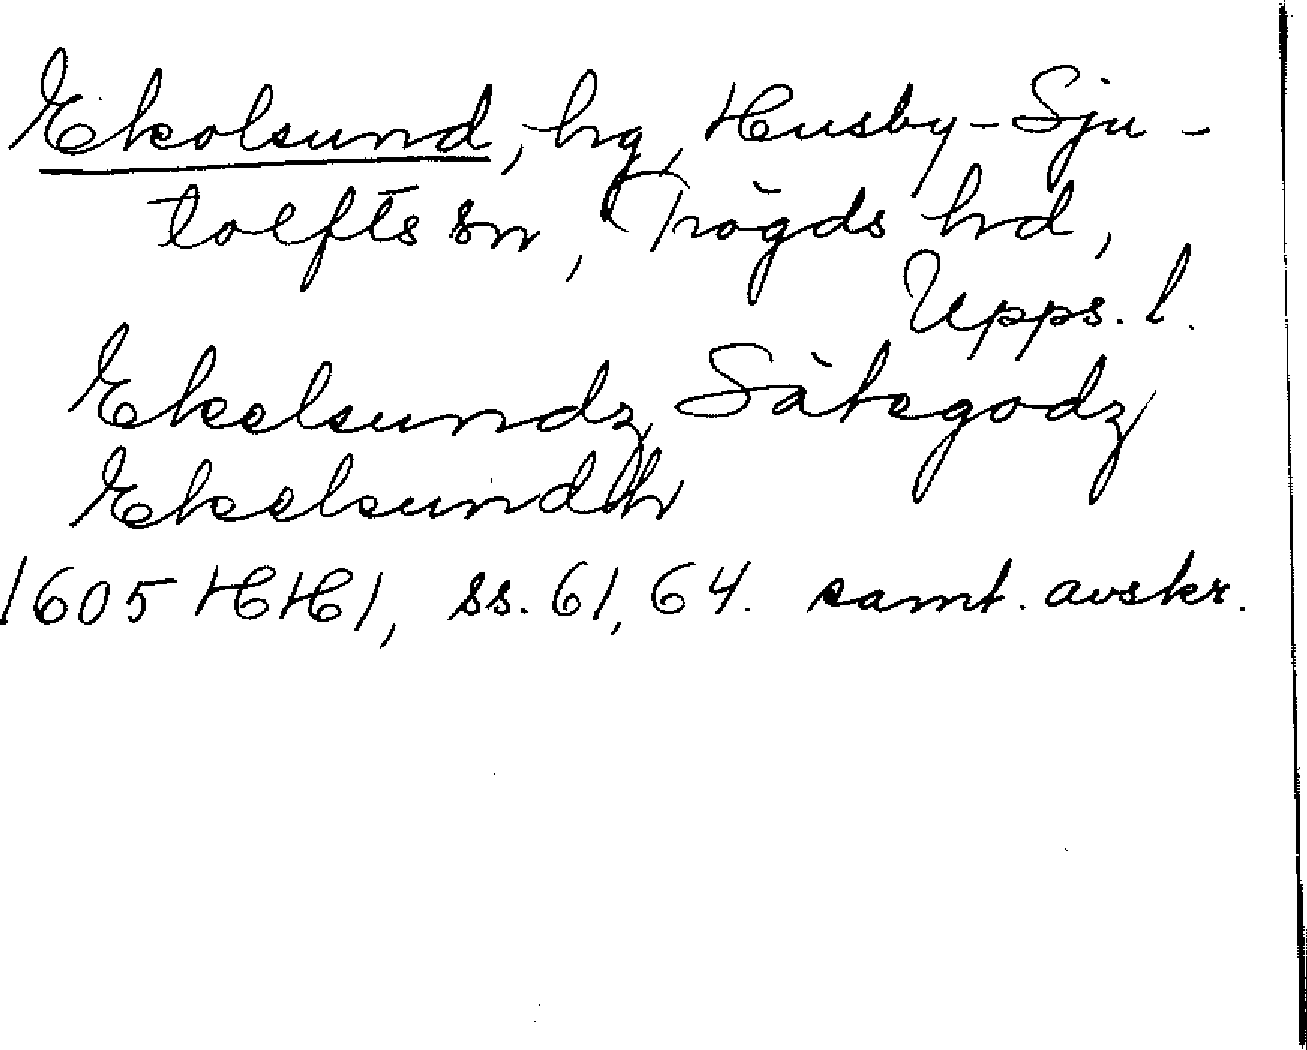 Ekolsund, hg, Husby-Sju-
tolfts sn, Trögds hd,
Upps. l.
Ekelsundz Sätegodz
Ekelsundh
1605 HH1, ss. 61, 64. samt. avskr.